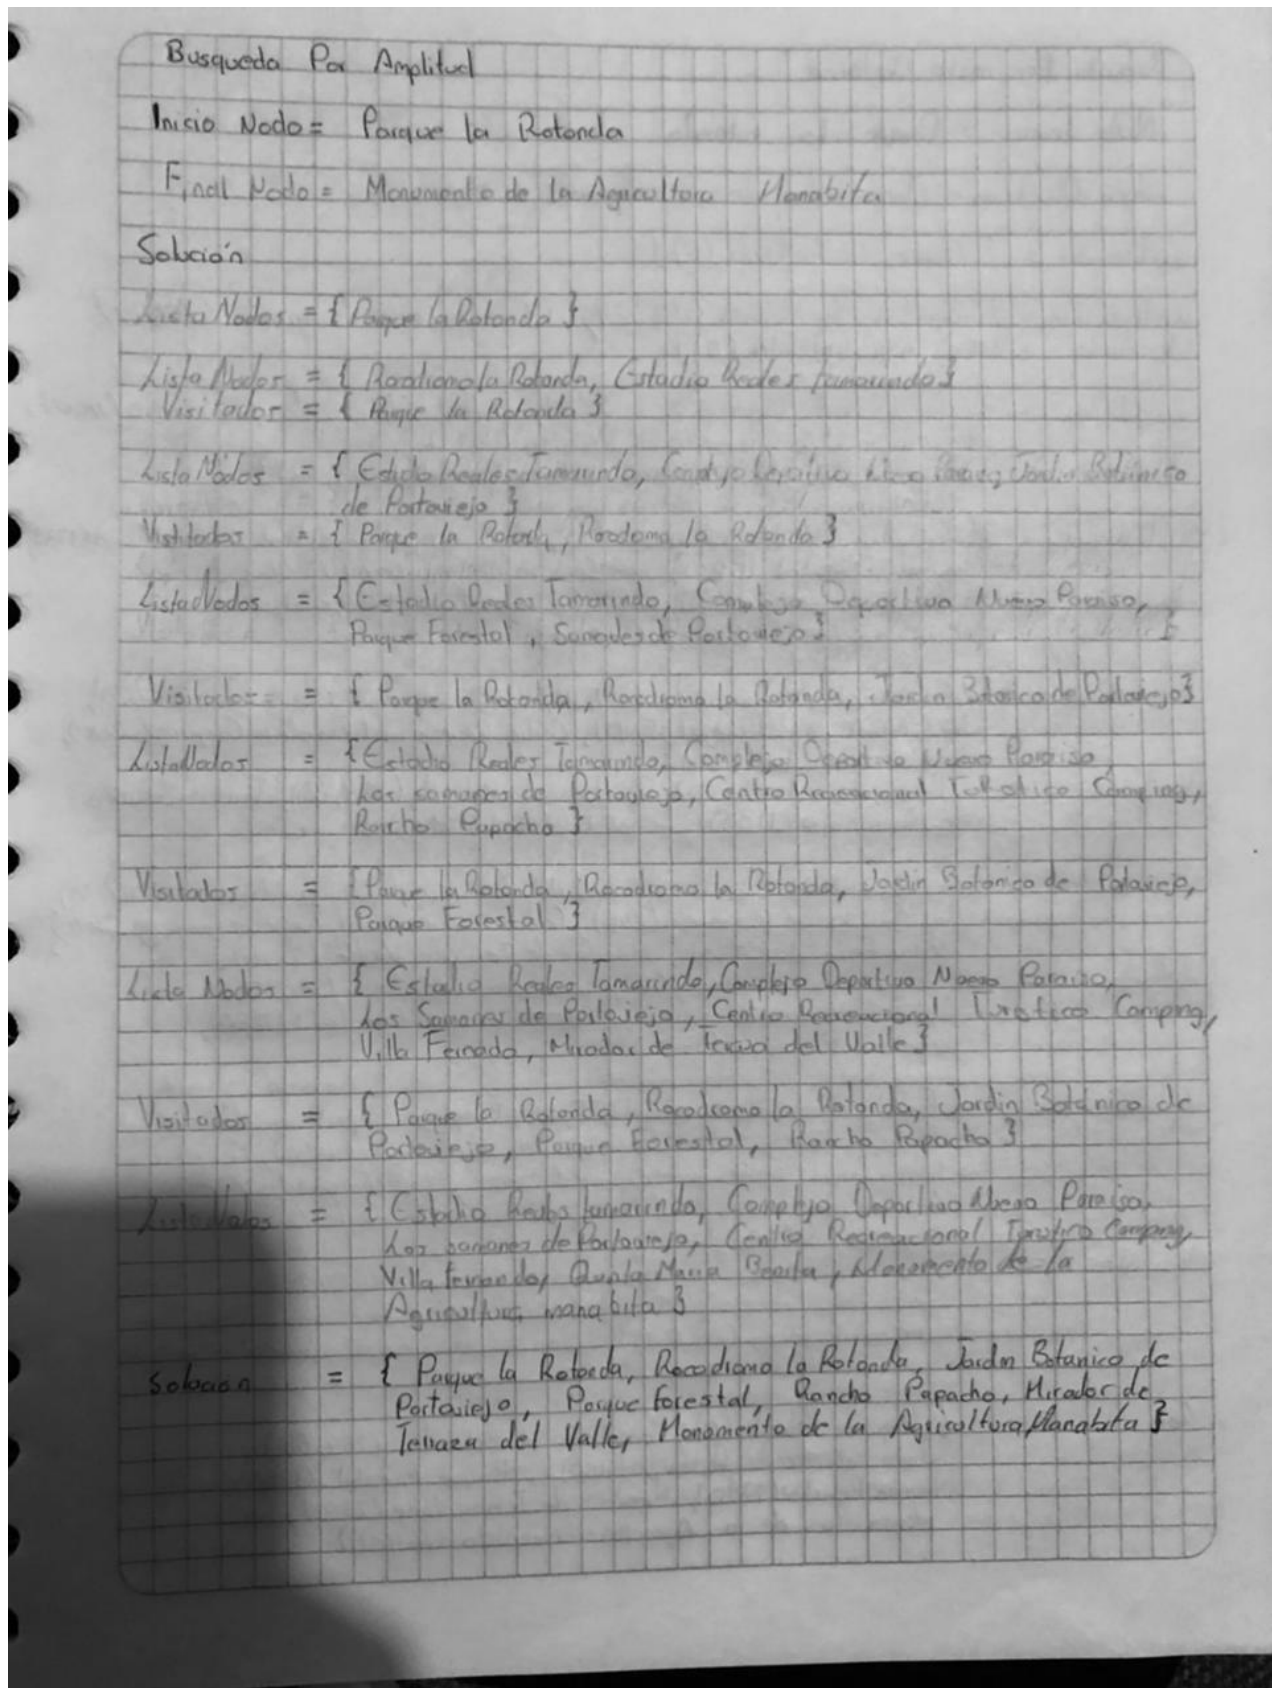 Busqueda Por Amplitud
Inicio Nodo = Parque la Rotonda
Final Nodo = Monumento de la Agricultora Manabita
Solución
Lista Nodos = { Parque la Rotonda }
Lista Nodos = { Rocodromo la Rotonda, Estadio Reales tamarindos }
Visitados = { Parque la Rotonda }
Lista Nodos = { Estadio Reales Tamarindo,
de Portoviejo }
= { Parque la Rotonda, Rocodromo la Rotonda }
ListaNodos = { Estadio Reales Tamarindo, Complejo Deportivo Nuevo Paraiso,
Parque Forestal, de Portoviejo } }
Visitados = { Parque la Rotonda, Rocodromo la Rotonda, Jardin Botanico de Portoviejo }
ListaNodos = { Estadio Reales Tamarindo, Complejo Deportivo Nuevo Paraiso,
Los samanes de Portoviejo, Centro Recreacional Camping,
Rancho Papacho }
Visitados = { Parque la Rotonda, Rocodromo la Rotonda, Jardin Botanico de Portoviejo,
Parque Forestal }
Lista Nodos = { Estadio Reales Tamarindo, Complejo Deportivo Nuevo Paraiso,
Los Samanes de Portoviejo, Centro Recreacional Turistico Camping,
Villa Fernando, Mirador de del Valle }
Visitados = { Parque la Rotonda, Rocodromo la Rotonda, Jardin Botánico de
Portoviejo, Parque Forestal, Rancho Papacho }
ListaNodos = { Estadio Reales tamarindo, Complejo Deportivo Nuevo Paraiso,
Los samanes de Portoviejo, Centro Recreacional Turistico Camping,
Villa fernando, Maria, Monumento de la
Agricultura manabita }
Solución = { Parque la Rotonda, Rocodromo la Rotonda, Jardin Botanico de
Portoviejo, Parque forestal, Rancho Papacho, Mirador de
Terraza del Valle, Monumento de la Agricultora Manabita }